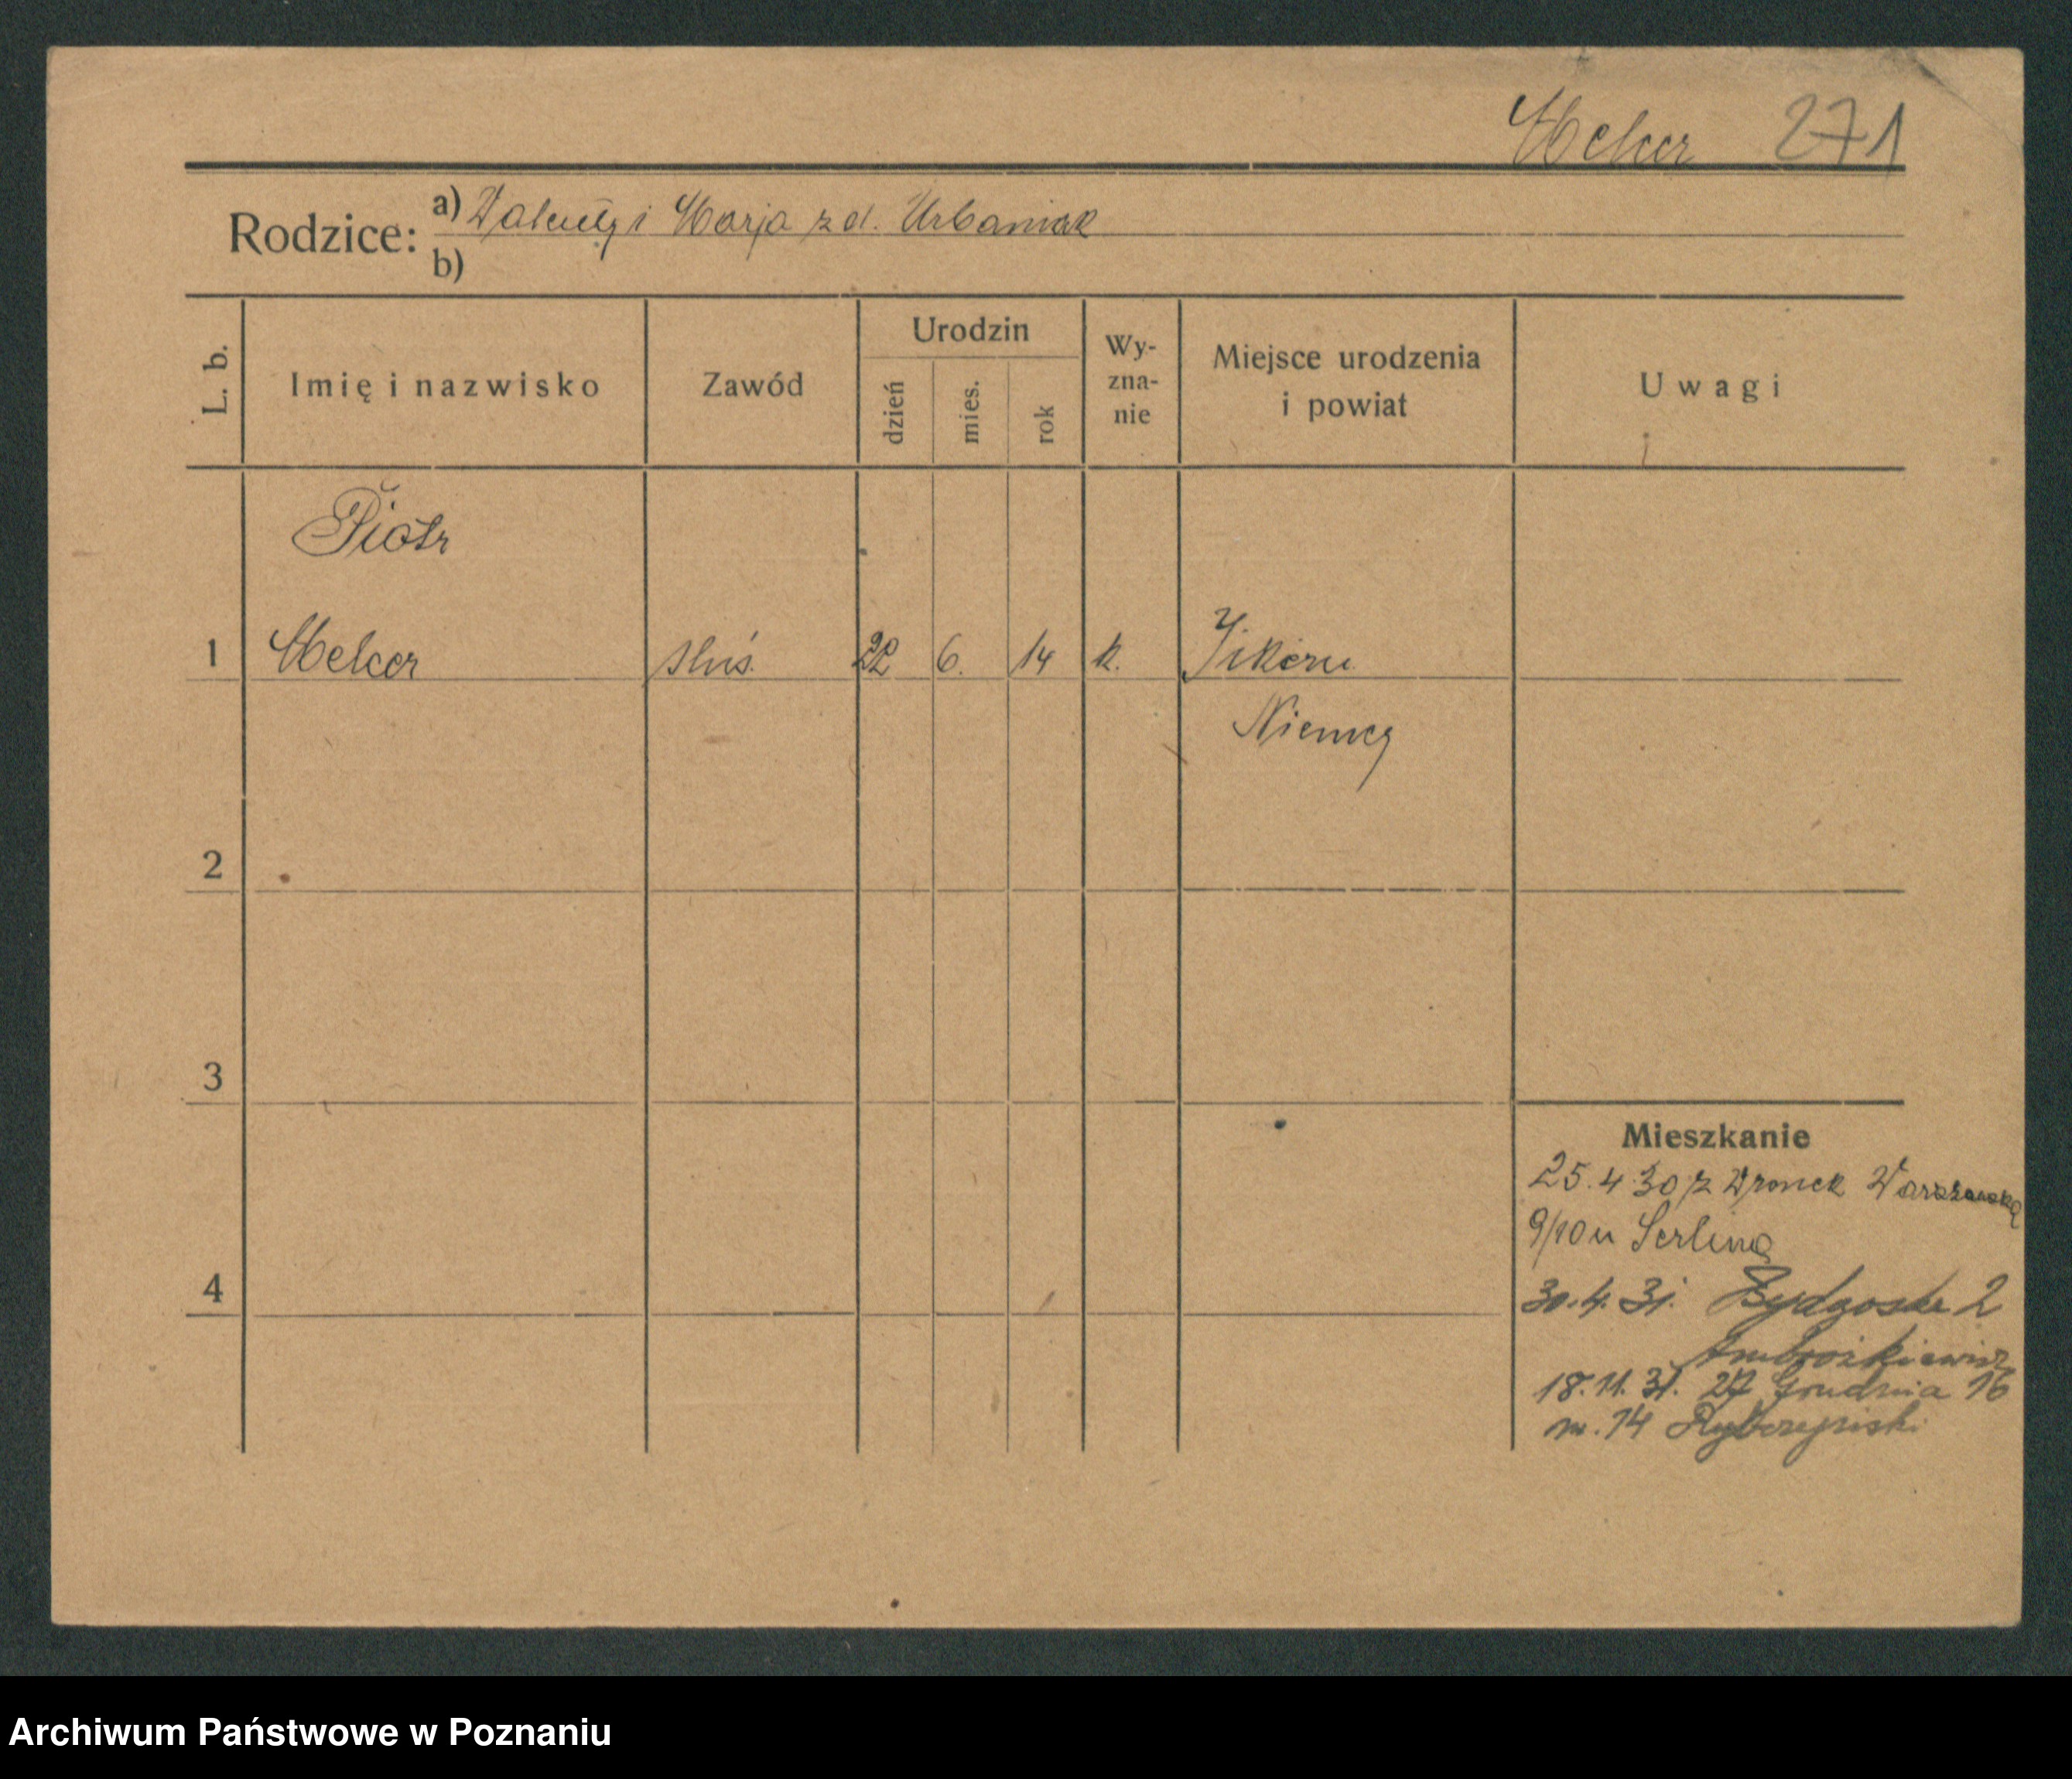 Melcer 271
Rodzice: a) Walenty i Marja z d. Urbaniak
b)
L. b. Imię i nazwisko Zawód Urodzin dzień mies. rok Wy-zna-nie Miejsce urodzenia i powiat Uwagi
Piotr
1 Melcer sluś. 22 6. 14 k.
Niemcy
2
3
Mieszkanie
25.4.30 z Wronek Warszawska
9/10 u
4
30.4.31. Bydgoska 2
18.11.31. 27 Grudnia 16
m. 14
Archiwum Państwowe w Poznaniu